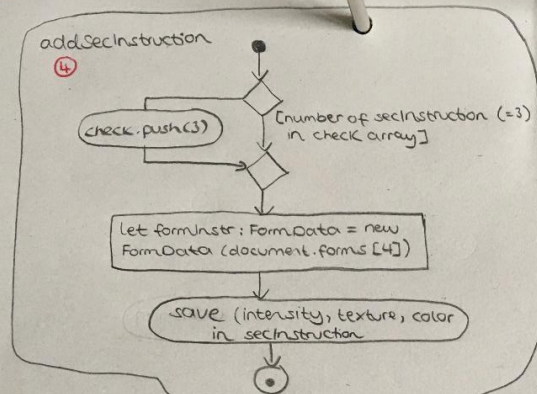 addSecInstruction
4
[number of secInstruction (=3)
in check array]
check.push(3)
let formInstr: FormData = new
FormData (document.forms [4])
save (intensity, texture, color
in secInstruction